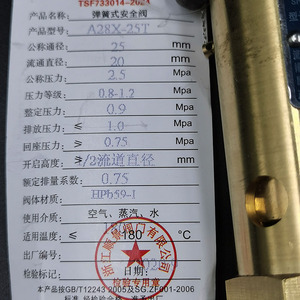 TSF733014-2024
产品名称: 弹簧式安全阀
产品型号: A28X-25T
公称通径: 25 mm
流道直径: 20 mm
公称压力: 2.5 Mpa
压力等级: 0.8-1.2
整定压力: 0.9 Mpa
排放压力: ≤ 1.0 Mpa
回座压力: ≥ 0.75 Mpa
开启高度: ≥ 1/2流道直径
额定排量系数: 0.75
阀体材质: HPb59-1
使用介质: 空气、蒸汽、水
适用温度: ≤ 180 ℃
出厂编号:
检验标记:
本产品按GB/T12243 2005及SG.ZF001-2006